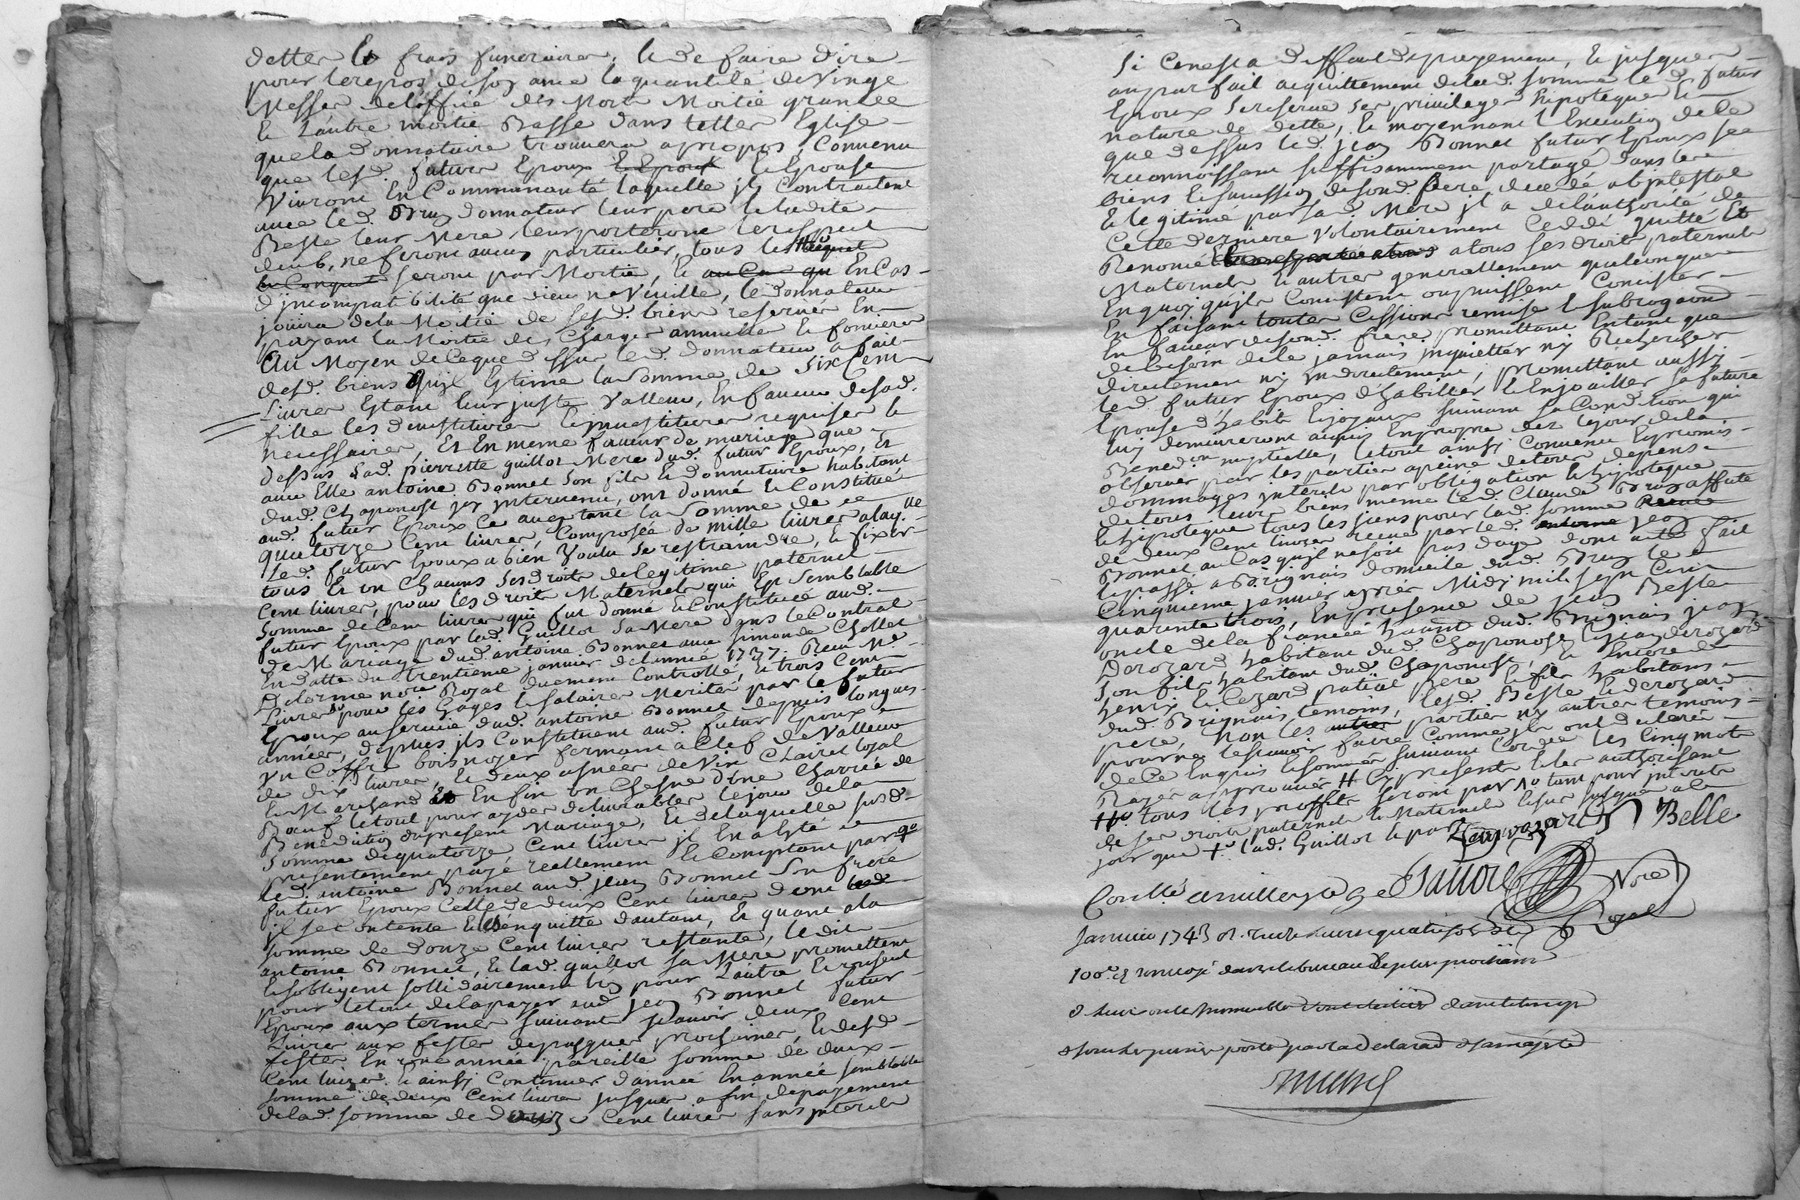 dettes Et frais funeraires, & de faire dire
pour le repos de son ame la quantité de Vingt
Messes de loffice des Morts Moitié grandes
& l'autre moitié Basse dans telles Eglise
que la donnataire trouvera apropos, Convenu
que lesd. futurs Epoux Et Epoux & Epouse
Vivront En Communauté laquelle ils Contractent
avec led. Bruy donnateur leur pere & ladite
Besle leur Mere, leur porteront le respect
deub, ne feront aucun particulier, tous les
En Conquet seront par Moitié, & au Cas qu En Cas
d'incompatibilité que dieu ne Veuille, le donnateur
jouira de la Moitié de sesd. biens reservés En
payant la Moitié des Charges annuelles & fonciere
Au Moyen de Ceque dessus led. donnateur a fait
desd. biens quil Estime la somme de Six Cent
Livres Estant leur juste Valleur, En faveur de sad.
fille les devestitures & investitures requises &
necessaires, Et En meme faveur de mariage que
dessus lad. pierrette guillot Mere dud. futur Epoux, Et
avec Elle antoine Bonnet son fils & donnataire habitant
dud. Chaponost icy intervenu, ont donné & Constitué
aud. futur Epoux Ce acceptant la somme de
quatorze Cent livres, Composée de mille livres a laq.lle
Led. futur Epoux a bien Voulu se restraindre, & fixer
tous Et Un Chacuns ses droits de legitime paternel
Cent livres, pour les droits Maternels qui Est semblable
somme de Cent livres qui fut donné & Constitué aud.
futur Epoux par lad. Guillot sa Mere dans le Contrat
de Mariage dud. antoine Bonnet avec simonde Chollet
En datte du trentieme janvier de lannée 1737. Receu Me
Delorme nore Royal duement Controllé, & trois Cent
Livres pour les gages & salaires Merités par le futur
Epoux au service dud. antoine Bonnet depuis longues
années, deplus ils Constituent aud. futur Epoux
Un Coffre bois noyer fermant a Clef de Valleur
de dix livres, & deux asnées de Vin Clairet loyal
& Marchand & En fin un Chesne d'une Charrée de
Bœuf & tout pour ayder delivrables le jour de la
Benediction du present Mariage, & de laquelle susd.
somme de quatorze Cent livres il En a Esté
presentement payé reellement & Comptant par
led. antoine Bonnet aud. jean Bonnet Son frere
futur Epoux Celle de deux Cent livres dont
il se Contente & Enquitte d'autant, & quant a la
somme de douze Cent livres restante, ledit
antoine Bonnet, & lad. guillot sa Mere promettent
& s'obligent sollidairement L'un pour L'autre &
pour le tout de la payer aud. jean Bonnet futur
Epoux aux termes suivants scavoir deux Cent
Livres aux festes de pasques prochaines, & desd.
festes En une année pareille somme de deux
Cent livres, & ainsi Continuer d'année En année semblable
somme de deux Cent livres jusques a fin de payement
de lad. somme de douze Cent livres sans interets
Si Ce nest a deffaut de payement, & jusques
au parfait acquittement de lad. somme led. futur
Epoux se reserve ses privileges hipoteques &
nature de dette, & moyennant l'Execution de Ce
que dessus led. jean Bonnet futur Epoux se
reconnoissant suffisamment partagé dans les
biens & succession de son d. Pere, decedé abintestat
& legitimé par sad. Mere il a de lauthorité de
Cette derniere Volontairement Ceddé quitté Et
Renoncé a tous ses droits paternels
Maternels & autres generallement quelconques
En quoi qu'ils Consistent ou puissent Consister
En faisant toutes Cessions remise & subrogations
En faveur de sond. frere, promettant Entant que
de besoin de le jamais inquietter ny Rechercher
directement ny indirectement, promettant aussy
led. futur Epoux d'habiller & Enjoailler sa future
Epouse d'habits & joyaux suivant sa Condition qui
luy demeureront acquis En propre dez le jour de la
Bened.on nuptialle, & tout ainsi Convenu & promis
observer par les parties apeine de tous depens
dommages interets par obligation & hipoteque
de tous leurs biens meme led. Claude Bruy affecte
& hipoteque tous les siens pour lad. somme
de deux Cent livres receue par led. antoine jean
Bonnet au Cas qu'il ne soit pas d'age dont acte fait
& passé a Brignais domicile dud. Bruy le
Cinquieme janvier après Midy mil sept Cent
quarante trois, En presence de jean Besle
oncle de la fiancée habitant dud. Brignais jean
Derozard habitant dud. Chaponost, & jean derozard
Son fils habitant dud. Chaponost, & Encore
henry & Cezard patiat pere & fils habitans
dud. Brignais temoins, lesd. Besle & derozard
pere, Non les autres parties ny autres temoins
pour ne le scavoir faire Comme ils ont declaré
de Ce Enquis & sommés suivant l'ordce les Cinq mots
Rayés approuvés # & present & les authorisant
tous les proffits seront par
de ses droits paternels & Maternels
jour que lad. Guillot
Jan derozard Belle
Contllé a millery le
Nore Royal
Janvier 1743
100